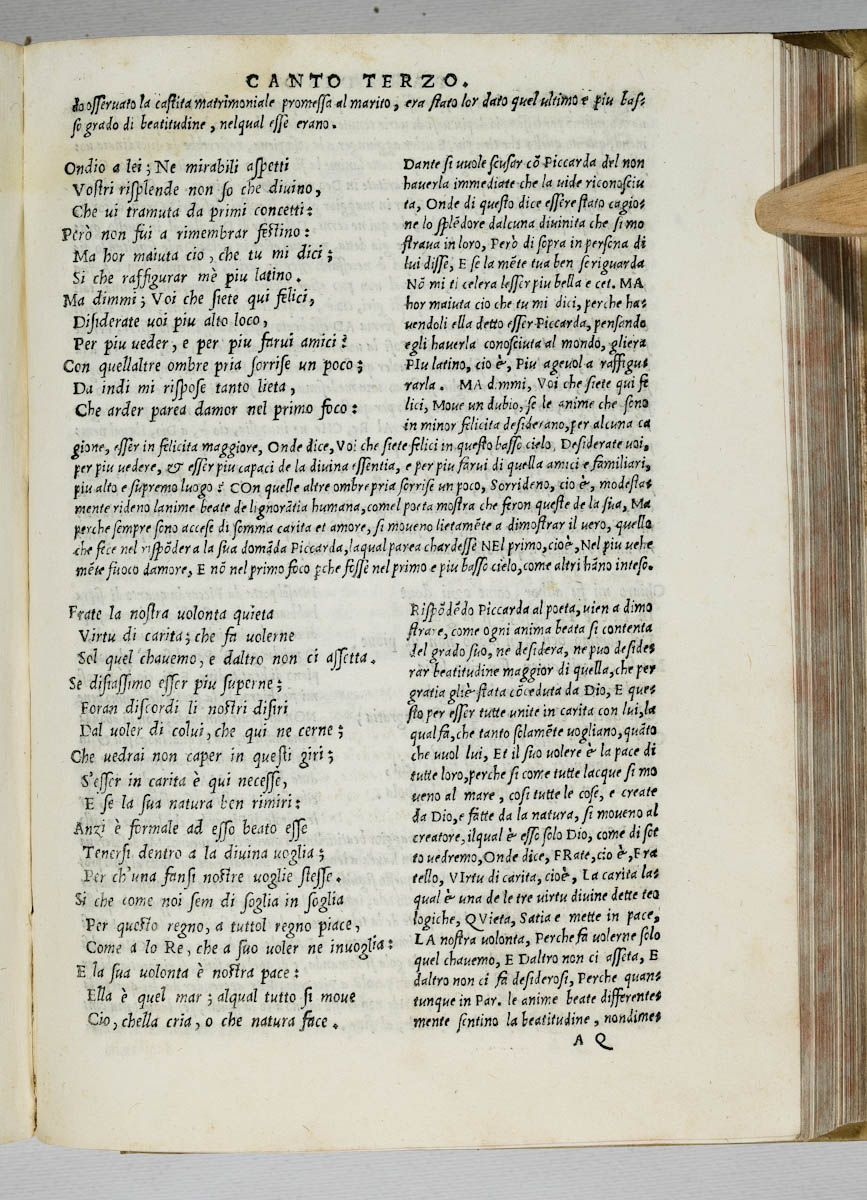 CANTO TERZO.
do osseruato la castita matrimoniale promessa al marito, era stato lor dato quel ultimo e piu bas-
so grado di beatitudine, nelqual esse erano.
Ondio a lei; Ne mirabili aspetti
Vostri risplende non so che diuino,
Che ui tramuta da primi concetti:
Però non fui a rimembrar festino:
Ma hor maiuta cio, che tu mi dici;
Si che raffigurar mè piu latino.
Ma dimmi; Voi che siete qui felici,
Disiderate uoi piu alto loco,
Per piu ueder, e per piu farui amici?
Con quellaltre ombre pria sorrise un poco;
Da indi mi rispose tanto lieta,
Che arder parea damor nel primo foco:
Dante si uuole scusar cō Piccarda del non
hauerla immediate che la uide riconosciu
ta, Onde di questo dice essere stato cagio-
ne lo splēdore dalcuna diuinita che si mo
straua in loro, Però di sopra in persona di
lui disse, E se la mēte tua ben se riguarda
Nō mi ti celera lesser piu bella e cet. MA
hor maiuta cio che tu mi dici, perche ha-
uendoli ella detto esser Piccarda, pensando
egli hauerla conosciuta al mondo, gliera
PIu latino, cio è, Piu ageuol a raffigu-
rarla. MA dimmi, Voi che siete qui fe
lici, Moue un dubio, se le anime che sono
in minor felicita desiderano, per alcuna ca
gione, esser in felicita maggiore, Onde dice, Voi che siete felici in questo basso cielo, Desiderate uoi,
per piu uedere, & esser piu capaci de la diuina essentia, e per piu farui di quella amici e familiari,
piu alto e supremo luogo? COn quelle altre ombre pria sorrise un poco, Sorrideno, cio è, modesta-
mente rideno lanime beate de lignorātia humana, comel poeta mostra che feron queste de la sua, Ma
perche sempre sono accese di somma carita et amore, si moueno lietamēte a dimostrar il uero, quello
che fece nel rispōdere a la sua domāda Piccarda, laqual parea chardesse NEl primo, cioè, Nel piu uehe
mēte fuoco damore, E nō nel primo foco ꝑche fosse nel primo e piu basso cielo, come altri hāno inteso.
Frate la nostra uolonta quieta
Virtu di carita; che fa uolerne
Sol quel chauemo, e daltro non ci assetta.
Se disiassimo esser piu superne;
Foran discordi li nostri disiri
Dal uoler di colui, che qui ne cerne;
Che uedrai non caper in questi giri;
S'esser in carita è qui necesse,
E se la sua natura ben rimiri:
Anzi è formale ad esso beato esse
Tenersi dentro a la diuina uoglia;
Per ch'una fansi nostre uoglie stesse.
Si che come noi sem di soglia in soglia
Per questo regno, a tuttol regno piace,
Come a lo Re, che a suo uoler ne inuoglia:
E la sua uolonta è nostra pace:
Ella è quel mar; alqual tutto si moue
Cio, chella cria, o che natura face.
Rispōdēdo Piccarda al poeta, uien a dimo
strare, come ogni anima beata si contenta
del grado suo, ne desidera, ne puo deside-
rar beatitudine maggior di quella, che per
gratia gliè stata cōceduta da Dio, E que-
sto per esser tutte unite in carita con lui, la
qual fa, che tanto solamēte uogliano, quāto
che uuol lui, Et il suo uolere è la pace di
tutte loro, perche si come tutte lacque si mo
ueno al mare, cosi tutte le cose, e create
da Dio, e fatte da la natura, si moueno al
creatore, ilqual è esso solo Dio, come di sot
to uedremo, Onde dice, FRate, cio è, Fra
tello, VIrtu di carita, cioè, La carita la-
qual è una de le tre uirtu diuine dette teo
logiche, QVieta, Satia e mette in pace,
LA nostra uolonta, Perche fa uolerne solo
quel chauemo, E Daltro non ci assēta, E
daltro non ci fa desiderosi, Perche quan-
tunque in Par. le anime beate differente-
mente sentino la beatitudine, nondime-
A Q